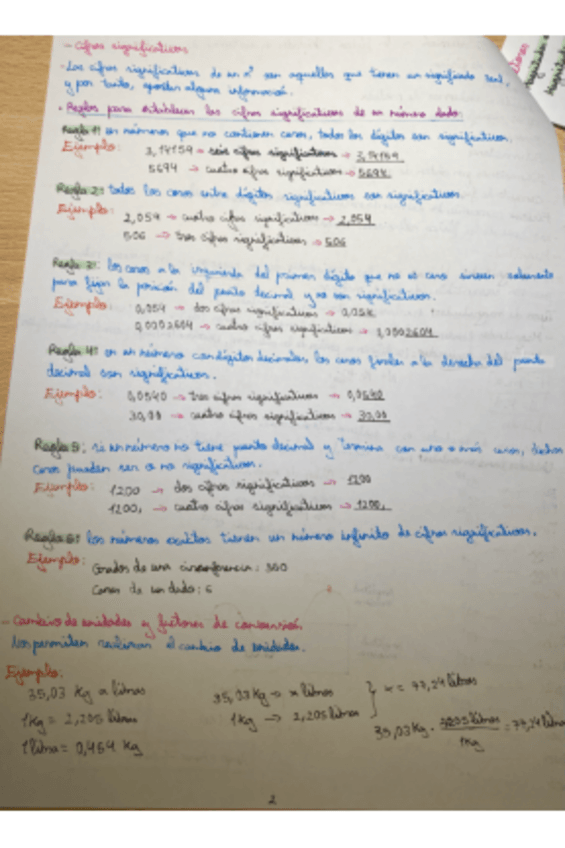 - Cifras significativas
· Las cifras significativas de un nº son aquellas que tienen un significado real,
y por tanto, aportan alguna información.
· Reglas para establecer las cifras significativas de un número dado:
Regla 1: en números que no contienen ceros, todos los dígitos son significativos.
Ejemplo: 3,14159 → seis cifras significativas → 3,14159
5694 → cuatro cifras significativas → 5694
Regla 2: todos los ceros entre dígitos significativos son significativos.
Ejemplo: 2,054 → cuatro cifras significativas → 2,054
506 → tres cifras significativas → 506
Regla 3: los ceros a la izquierda del primer dígito que no es cero sirven solamente
para fijar la posición del punto decimal y no son significativos.
Ejemplo: 0,054 → dos cifras significativas → 0,054
0,0002604 → cuatro cifras significativas → 0,0002604
Regla 4: en un número con dígitos decimales, los ceros finales a la derecha del punto
decimal son significativos.
Ejemplo: 0,0540 → tres cifras significativas → 0,0540
30,00 → cuatro cifras significativas → 30,00
Regla 5: si un número no tiene punto decimal y termina con uno o más ceros, dichos
ceros pueden ser o no significativos.
Ejemplo: 1200 → dos cifras significativas → 1200
1200, → cuatro cifras significativas → 1200,
Regla 6: los números exactos tienen un número infinito de cifras significativas.
Ejemplo: Grados de una circunferencia: 360
Caras de un dado: 6
- Cambio de unidades y factores de conversión
Nos permiten realizar el cambio de unidades.
Ejemplo:
35,03 Kg a libras
1Kg = 2,205 libras
1 libra = 0,454 Kg
35,03 Kg → x libras
1Kg → 2,205 libras
x = 77,24 libras
35,03 Kg · 2,205 libras / 1Kg = 77,24 libras
2